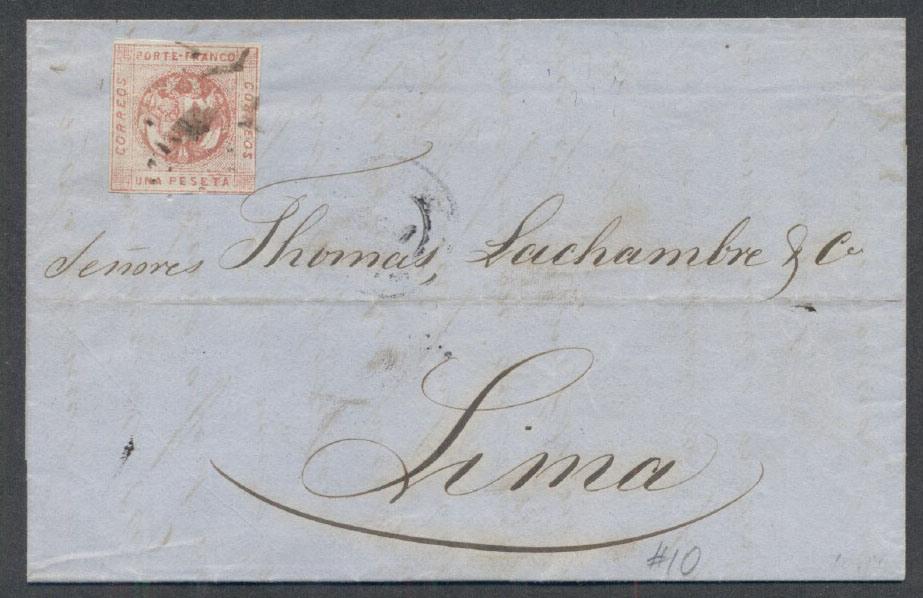 PORTE-FRANCO
CORREOS
CORREOS
UNA PESETA
Señores Thomas, Lachambre & Co
Lima
#10